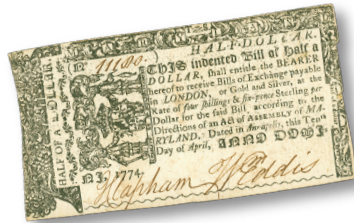 HALF-DOLLAR.
HALF OF A DOLLAR.
No. 11180.
THIS indented Bill of Half a
DOLLAR, shall entitle the BEARER
hereof to receive Bills of Exchange payable
in LONDON, or Gold and Silver, at the
Rate of four shillings & six-pence Sterling per
Dollar for the said Bill, according to the
Directions of an Act of ASSEMBLY of MA-
RYLAND. Dated in Annapolis, this Tenth
Day of April, ANNO DOMI-
NI. 1774.
Clapham W Eddis